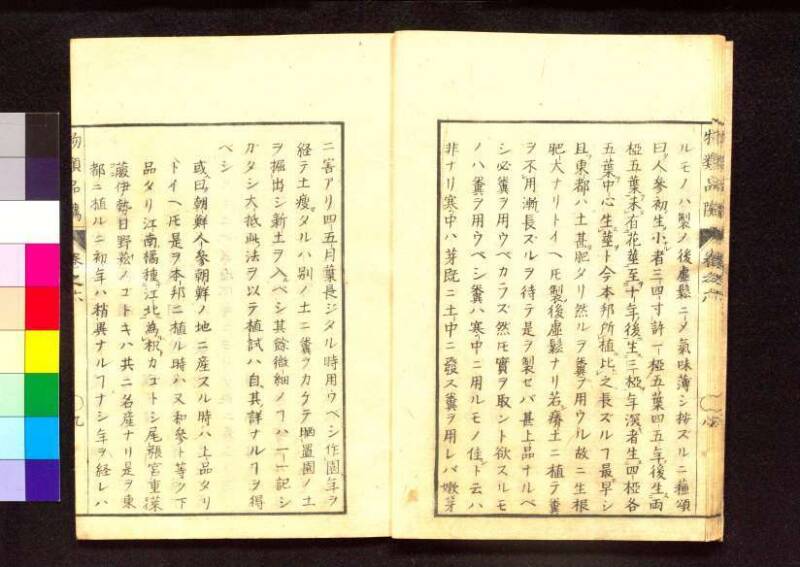 ルモノハ製ノ後虚鬆ニメ氣味薄シ按ズルニ蘓頌
曰人參初生小者三四寸許一椏五葉四五年後生両
椏五葉末有花莖至十年後生三椏年深者生四椏各
五葉中心生莖ト今本邦所植比之長ズルヿ最早シ
且東都ハ土甚肥タリ然ルヲ糞ヲ用ウル故ニ生根
肥大ナリトイヘ𪜈製後虚鬆ナリ若瘠土ニ植テ糞
ヲ不用漸長ズルヲ待テ是ヲ製セバ甚上品ナルベ
シ必糞ヲ用ウベカラズ然𪜈實ヲ取ント欲スルモ
ノハ糞ヲ用ウベシ糞ハ寒中ニ用ルモノ佳ト云ハ
非ナリ寒中ハ芽既ニ土中ニ發ス糞ヲ用レバ嫩芽
物類品隲 巻之六
ニ害アリ四五月葉長ジタル時用ウベシ作園年ヲ
経テ土瘦タルハ別ノ土ニ糞ヲカケテ晒置園ノ土
ヲ掘出シ新土ヲ入ベシ其餘微細ノヿハ一一記シ
ガタシ大抵此法ヲ以テ植試ハ自其詳ナルヿヲ得
ベシ
或曰朝鮮人參朝鮮ノ地ニ産スル時ハ上品タリ
トイヘ𪜈是ヲ本邦ニ植ル時ハ又和參ト等ク下
品タリ江南橘種江北為枳カゴトシ尾張宮重蘿
蔔伊勢日野菘ノゴトキハ共ニ名産ナリ是ヲ東
都ニ植ルニ初年ハ枯異ナルヿナシ年ヲ経レハ
物類品隲 巻之六 ○九